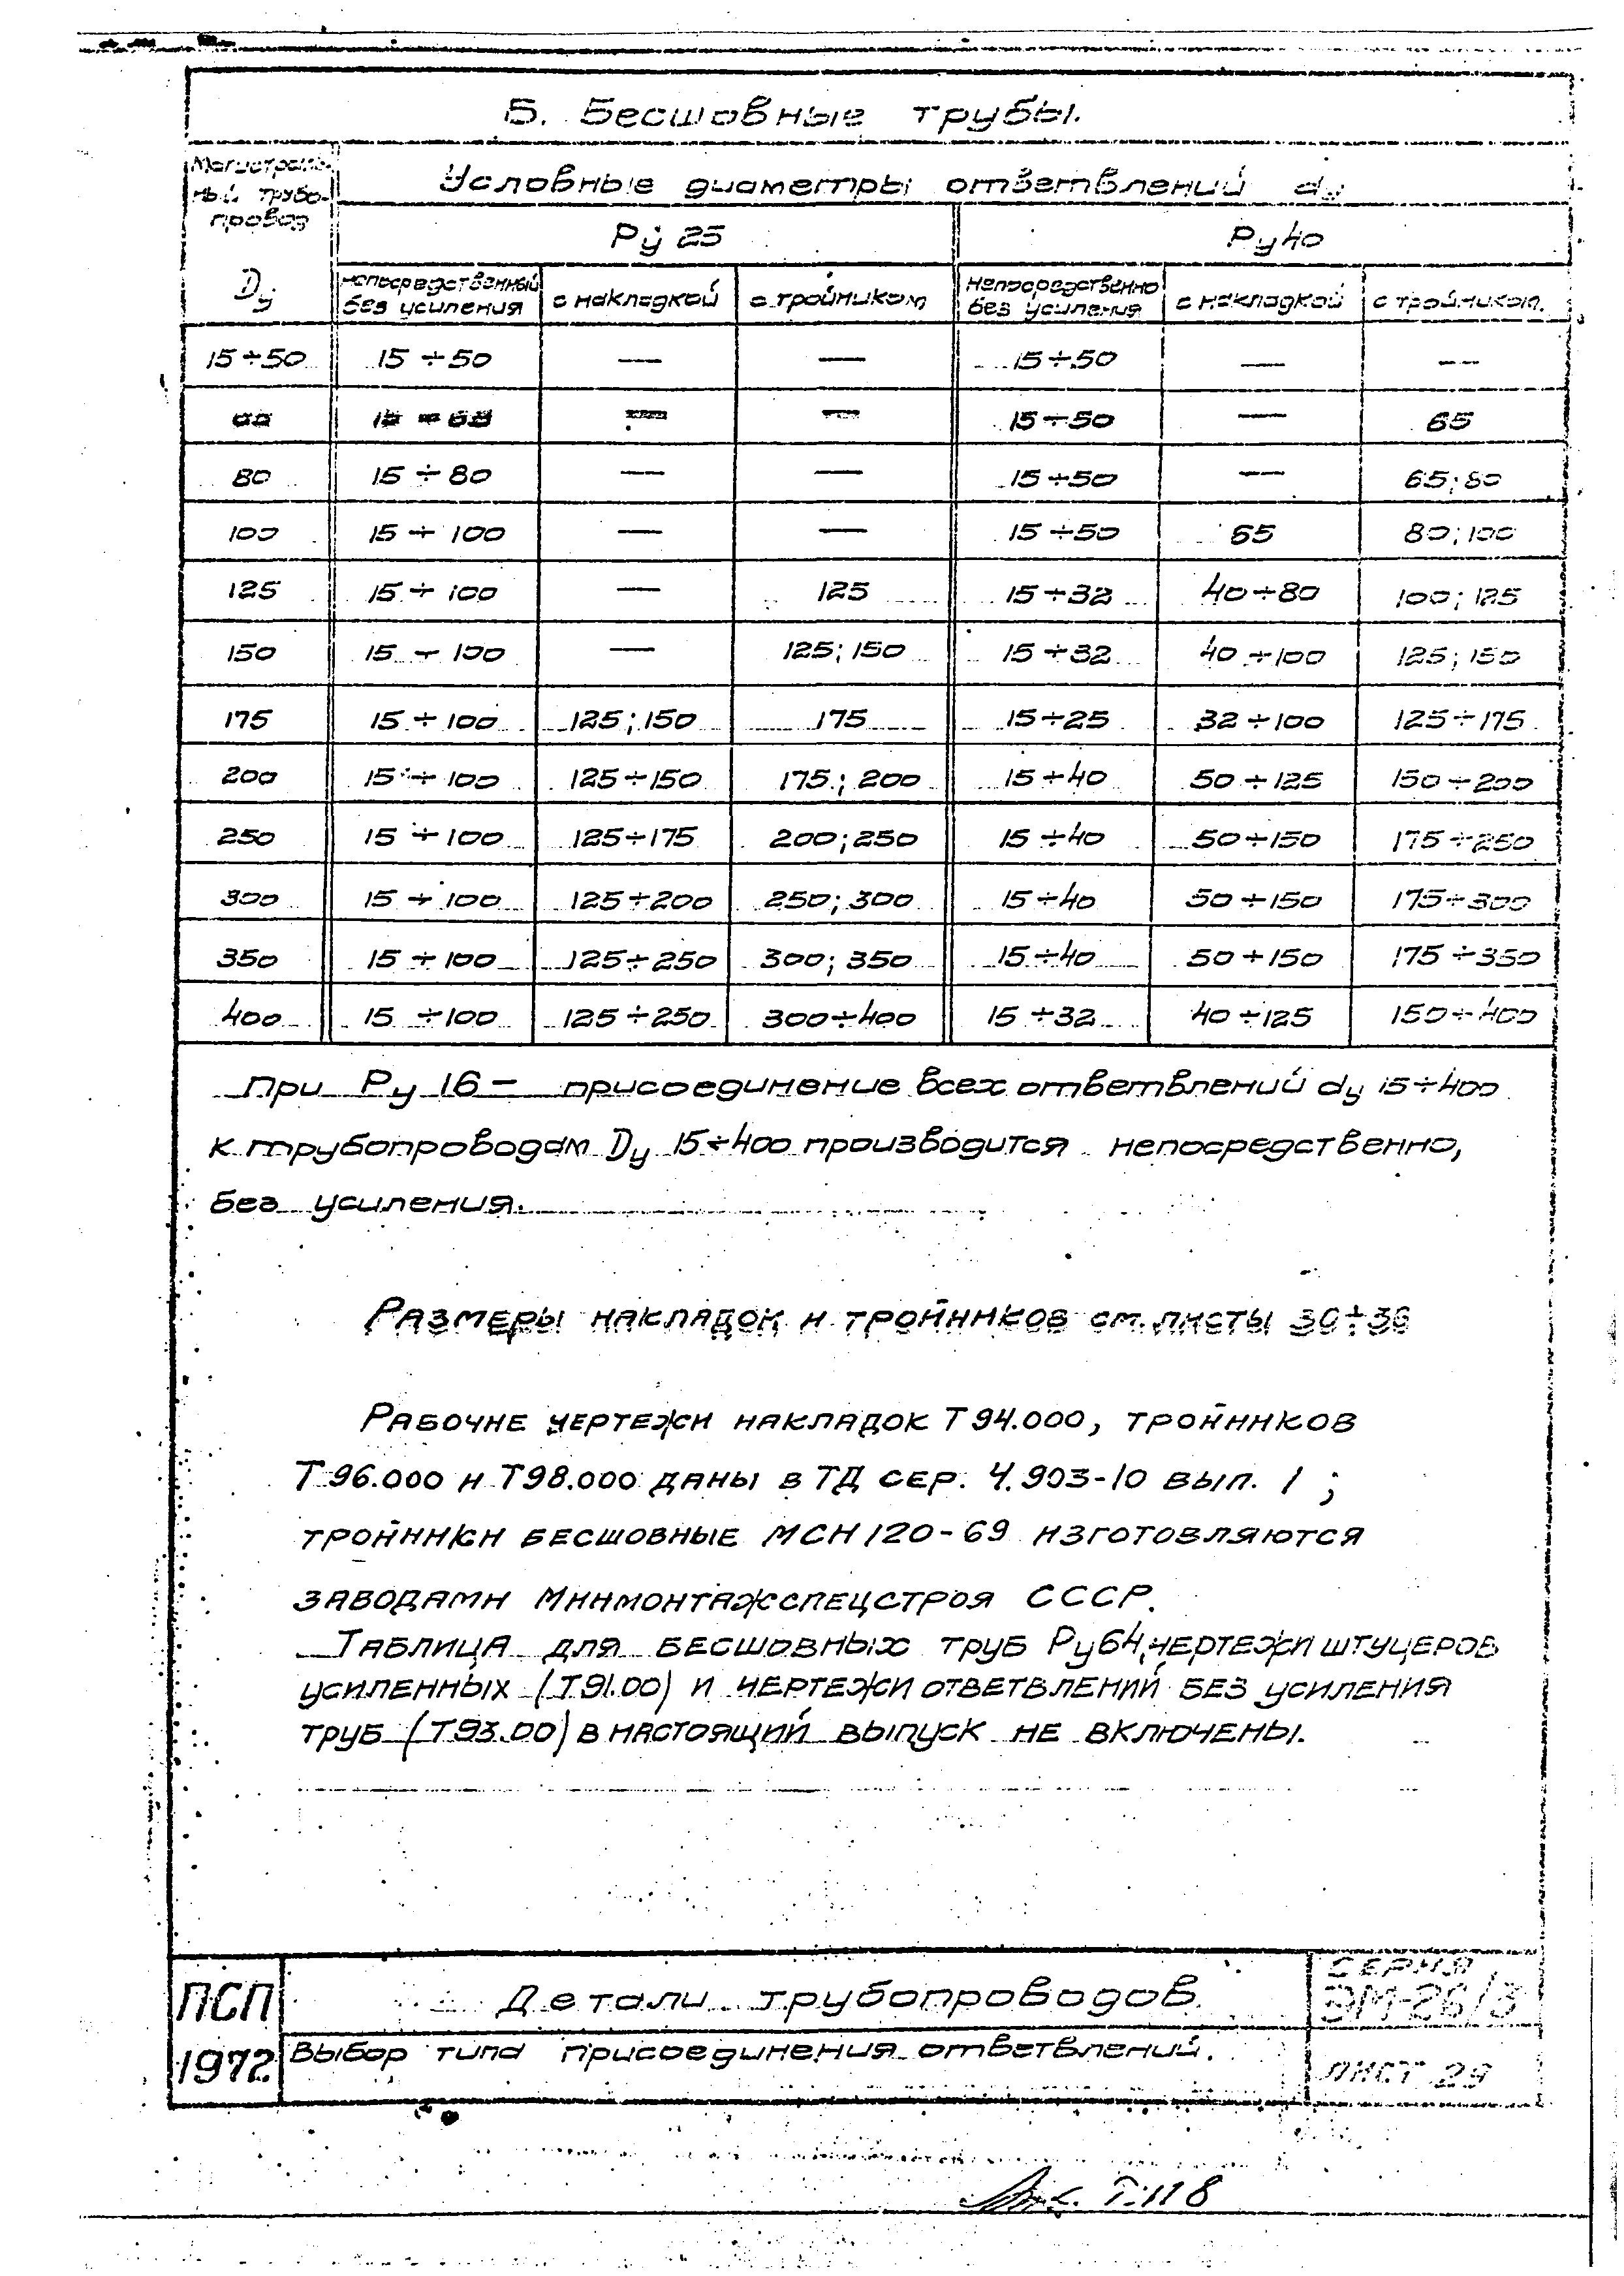 Б. Бесшовные трубы.
Магистраль-
ный трубо-
провод
Dу
Условные диаметры ответвлений dу
Ру 25
Ру 40
непосредственный без усиления
с накладкой
с тройником
непосредственно без усиления
с накладкой
с тройником.
15÷50 15÷50 — — 15÷50 — —
— — 15÷50 — 65
80 15÷80 — — 15÷50 — 65; 80
100 15÷100 — — 15÷50 65 80; 100
125 15÷100 — 125 15÷32 40÷80 100; 125
150 15÷100 — 125; 150 15÷32 40÷100 125; 150
175 15÷100 125; 150 175 15÷25 32÷100 125÷175
200 15÷100 125÷150 175; 200 15÷40 50÷125 150÷200
250 15÷100 125÷175 200; 250 15÷40 50÷150 175÷250
300 15÷100 125÷200 250; 300 15÷40 50÷150 175÷300
350 15÷100 125÷250 300; 350 15÷40 50÷150 175÷350
400 15÷100 125÷250 300÷400 15÷32 40÷125 150÷400
При Ру 16 — присоединение всех ответвлений dу 15÷400
к трубопроводам Dу 15÷400 производится непосредственно,
без усиления.
Размеры накладок и тройников см. листы 30÷36
Рабочие чертежи накладок Т 94.000, тройников
Т 96.000 и Т98.000 даны в ТД сер. 4.903-10 вып. 1;
тройники бесшовные МСН 120-69 изготовляются
заводами Минмонтажспецстроя СССР.
Таблица для бесшовных труб Ру64, чертежи штуцеров
усиленных (Т91.00) и чертежи ответвлений без усиления
труб (Т93.00) в настоящий выпуск не включены.
ПСП
1972
Детали трубопроводов.
Выбор типа присоединения ответвлений.
Серия
ЭМ-26/3
Лист 29